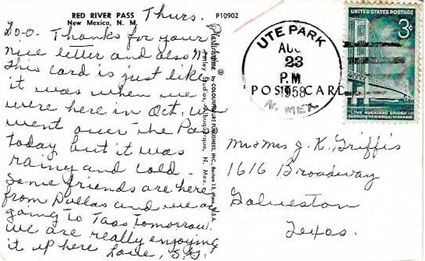 RED RIVER PASS
New Mexico, N. M.
P10902
Thurs.
Thanks for your
nice letter and also
This card is just like
it was when we
were here in Oct. We
went over the Pass
today but it was
rainy and cold.
Some friends are here
from Dallas and we are
going to Taos tomorrow.
We are really enjoying
it up here Love, S.G.
Plastichrome
UTE PARK
AUG
23
P.M
1958
N. MEX.
POST CARD
UNITED STATES POSTAGE
3¢
Mr & Mrs J. K. Griffis
1616 Broadway
Galveston
Texas.